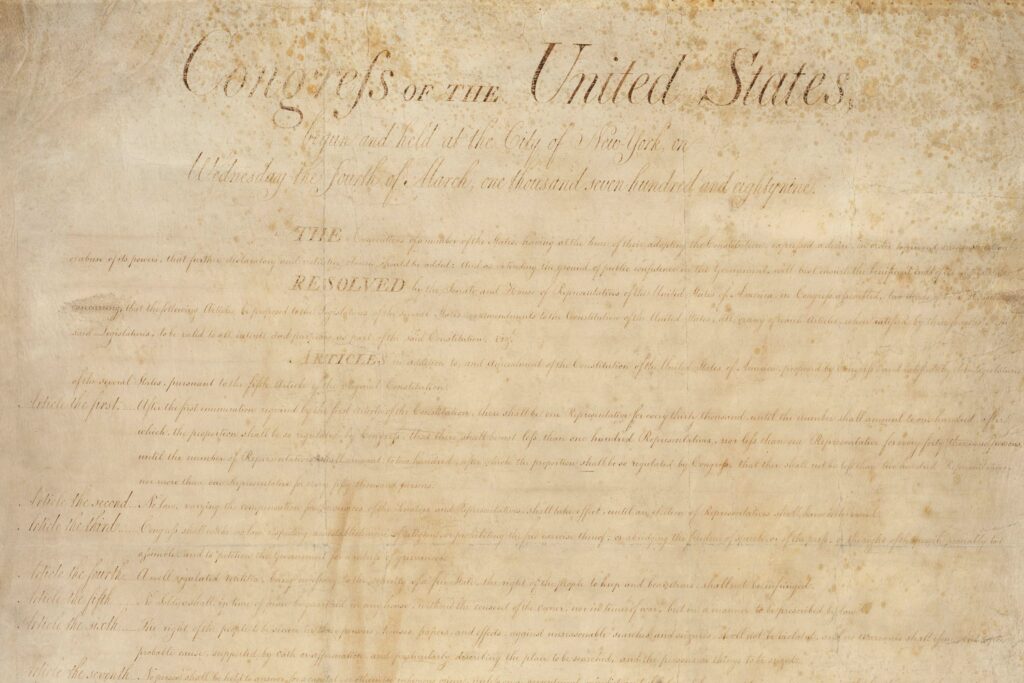 Congreſs OF THE United States,
begun and held at the City of New York, on
Wednesday the fourth of March, one thousand seven hundred and eighty nine.
THE Conventions of a number of the States, having at the time of their adopting the Constitution, expressed a desire, in order to prevent
or abuse of its powers, that further declaratory and restrictive clauses should be added: And as extending the ground of public confidence in the Government, will best ensure the beneficent ends of
RESOLVED by the Senate and House of Representatives of the United States of America, in Congreſs aſsembled, two thirds of
concurring, that the following Articles be proposed to the Legislatures of the several States, as amendments to the Constitution of the United States, all, or any of which Articles, when ratified by three fourths of the
said Legislatures, to be valid to all intents and purposes, as part of the said Constitution; viz.
ARTICLES in addition to, and Amendment of the Constitution of the United States of America, proposed by Congreſs and ratified by the Legislatures
of the several States, pursuant to the fifth Article of the original Constitution.
Article the first. After the first enumeration required by the first Article of the Constitution, there shall be one Representative for every thirty thousand, until the number shall amount to one hundred, after
which, the proportion shall be so regulated by Congreſs, that there shall be not leſs than one hundred Representatives, nor leſs than one Representative for every forty thousand persons,
until the number of Representatives shall amount to two hundred, after which the proportion shall be so regulated by Congreſs, that there shall not be leſs than two hundred Representatives,
nor more than one Representative for every fifty thousand persons.
Article the second. No law, varying the compensation for the services of the Senators and Representatives, shall take effect, until an election of Representatives shall have intervened.
Article the third. Congreſs shall make no law respecting an establishment of religion, or prohibiting the free exercise thereof; or abridging the freedom of speech, or of the preſs; or the right of the people peaceably to
aſsemble, and to petition the Government for a redreſs of grievances.
Article the fourth. A well regulated Militia, being neceſsary to the security of a free State, the right of the people to keep and bear Arms, shall not be infringed.
Article the fifth. No Soldier shall, in time of peace be quartered in any house, without the consent of the owner, nor in time of war, but in a manner to be prescribed by law.
Article the sixth. The right of the people to be secure in their persons, houses, papers, and effects, against unreasonable searches and seizures, shall not be violated, and no warrants shall iſsue, but upon
probable cause, supported by oath or affirmation, and particularly describing the place to be searched, and the persons or things to be seized.
Article the seventh. No person shall be held to answer for a capital, or otherwise infamous crime, unleſs